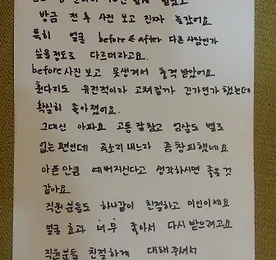 방금 전 후 사진 보고 진짜 놀랐어요
특히 얼굴 before & after 다른 사람인가
싶을정도로 다르더라고요.
before 사진 보고 못생겨서 충격 받았어요.
유전적이라 고쳐질까 긴가민가 했는데
확실히 좋아졌어요.
그대신 아파요 고통 잘참고 엄살도 별로
없는 편인데 목소리 내느라 좀 창피했네요
아픈만큼 예뻐진다고 생각하시면 좋을 것
같아요.
직원분들도 하나같이 친절하고 미인이세요
얼굴 효과 너무 좋아서 다시 받으려고요
직원분들 친절하게 대해 주셔서